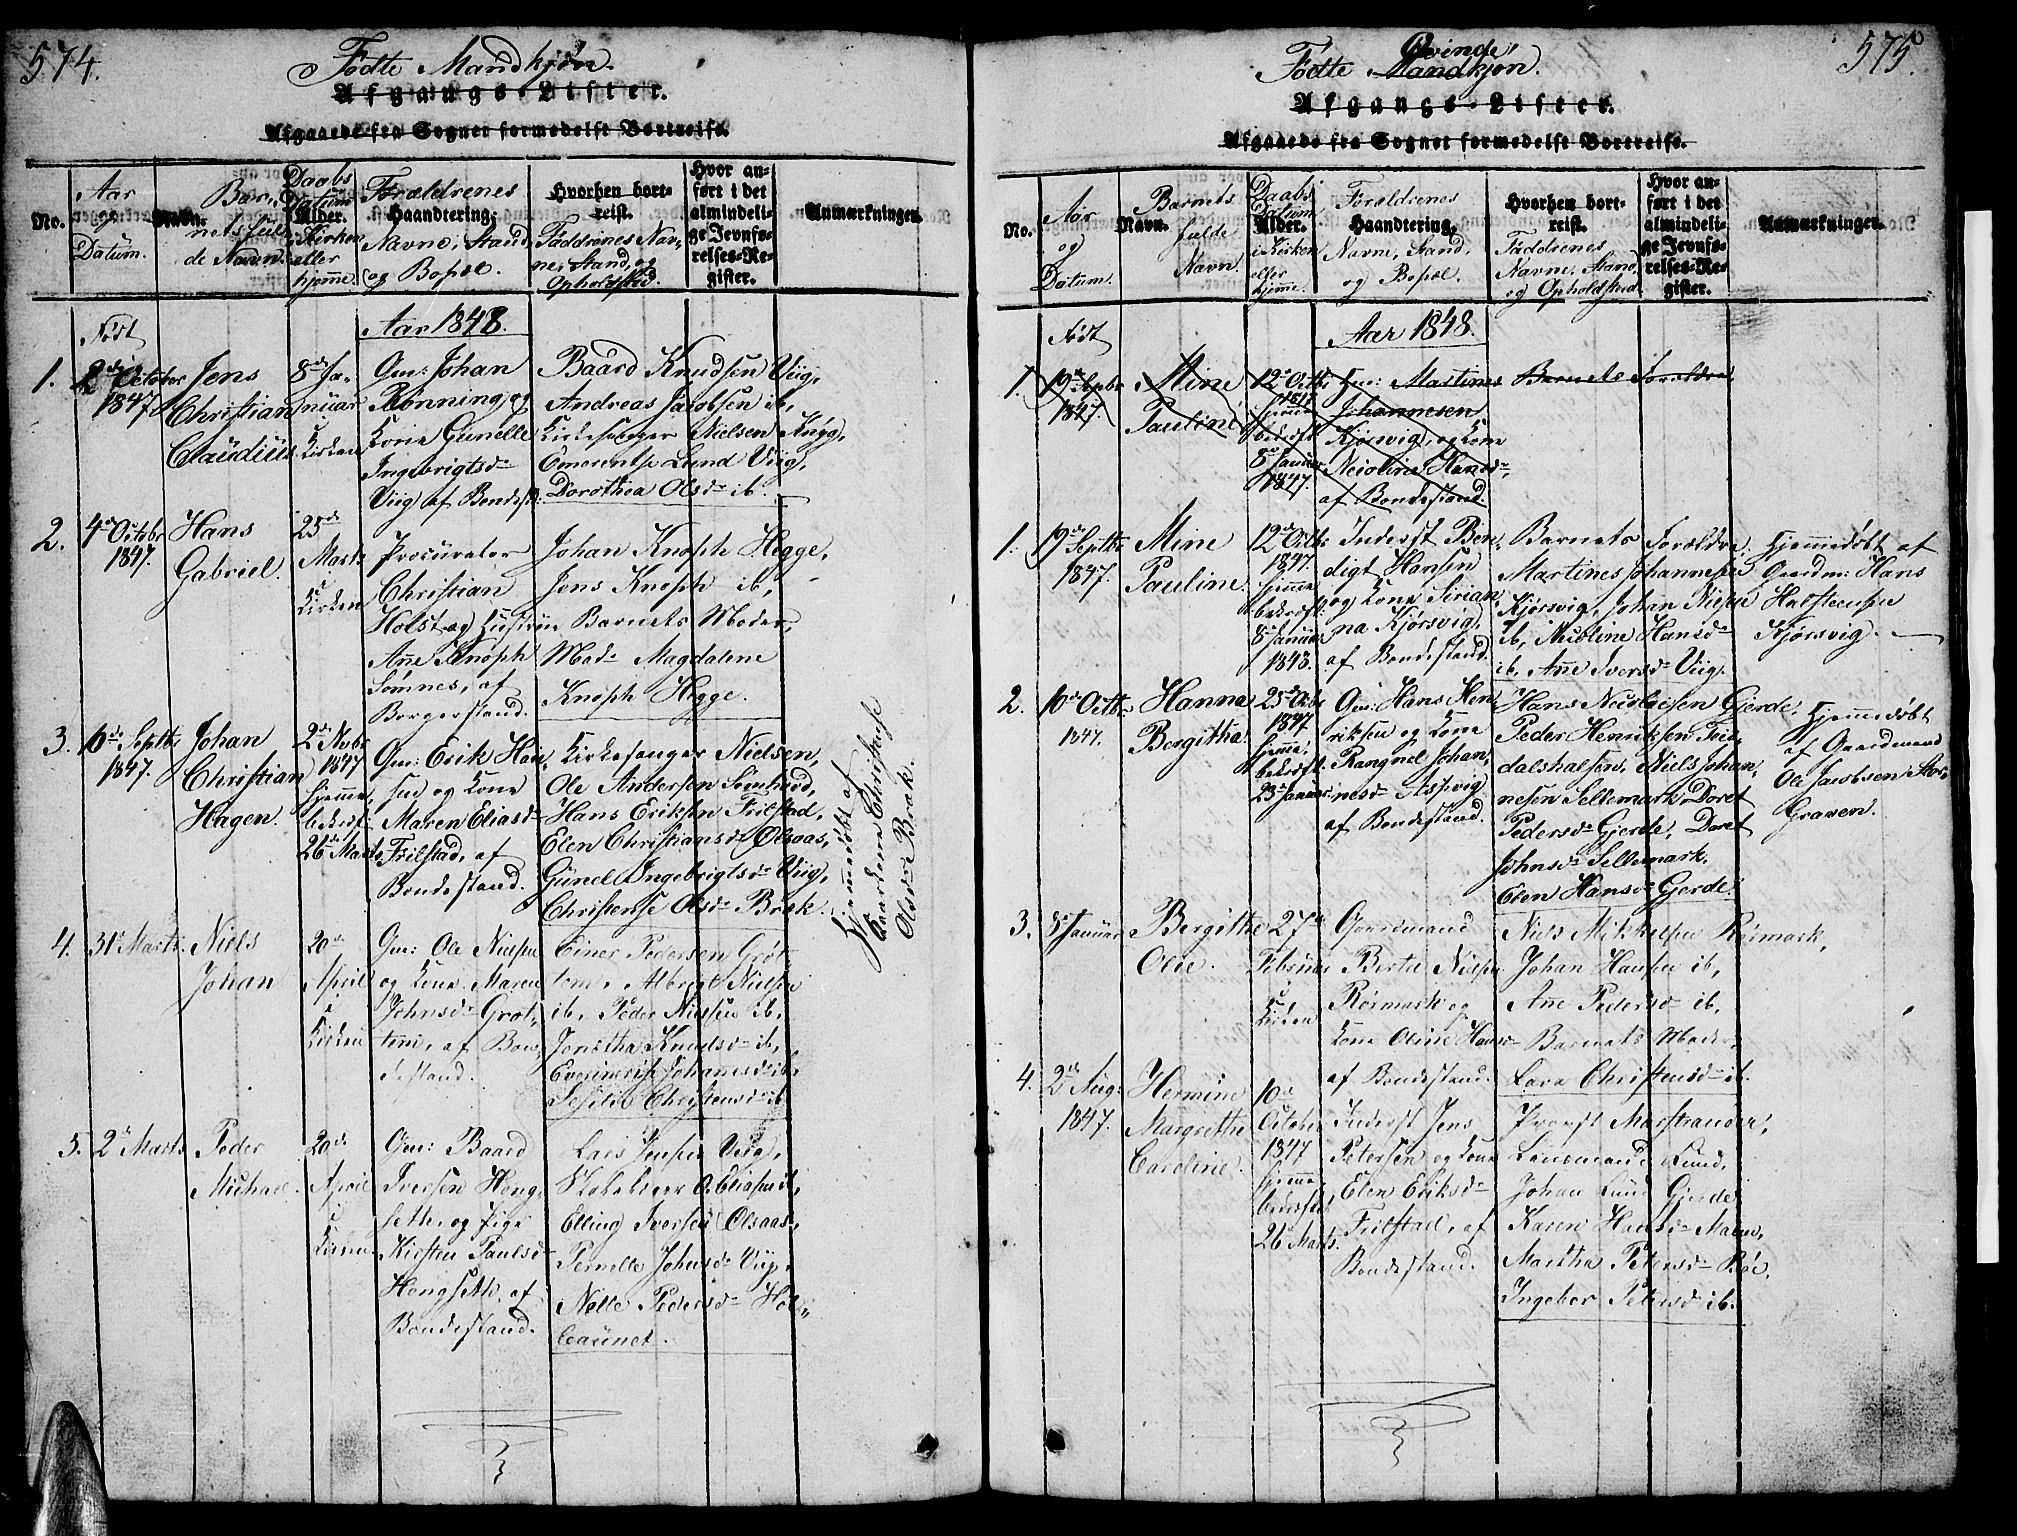 574.
Fødte Mandkjøn.
Afgangs-Lister.
Afgaaede fra Sognet formedelst Bortreise.
No.
Aar og Datum.
Navn.
Barnets fulde Navn.
Daabs Datum
Alder.
i Kirken eller hjemme.
Forældrenes
Haandtering.
Navne, Stand og Bopæl.
Hvorhen bortreist.
Faddrenes Navne, Stand, og Opholdsted.
Hvor anført i det almindelige Jevnførelses-Register.
Anmærkninger.
Født
Aar 1848.
1.
2de October
1847.
Jens
Christian
Claudius
8de Januar
Kirken
Gm: Johan
Rønning og
Kone Gunelle
Ingebrigtsdr
Viig af Bondest:
Baard Knudsen Viig,
Andreas Jacobsen ib,
Kirkesanger Nielsen
Emerentse Lund Viig,
Dorothea Olsdr ib.
2.
4de Octobr
1847.
Hans
Gabriel.
25de
Marts
i
Kirken
Procurator
Christian
Holst og Hustrue
Ane Knoph
Sømnes, af
Borgerstand.
Johan Knoph Hegge,
Jens Knoph ib,
Barnets Moder,
Mad. Magdalene
Knoph Hegge.
3.
6de Septbr
1847.
Johan
Christian
Hagen.
2de Nvbr
1847
hjemme,
bekræf:
26de Marts
Gm: Erik Han-
sen og Kone
Maren Eliasdr
Frilstad, af
Bondestand.
Kirkesanger Nielsen,
Ole Andersen
Hans Eriksen Frilstad,
Elen Christiansdr Olsaas,
Gunel Ingebrigtsdr Viig,
Christense Olsdr Bræk.
Hjemmedøbt af
Gaardkone Christense
Olsdr Bræk.
4.
31te Marts
Niels
Johan
20de
April
i
Kirken
Gm: Ole Nielsen
og Kone Maren
Johnsdr Grøt-
tem, af Bon-
destand.
Einer Pedersen Grøt-
tem, Albrigt Nielsen
ib, Peder Nielsen ib,
Jonetha Knudsdr ib,
Johansdr ib
Christensdr ib
5.
2de Marts
Peder
Michael.
20de
April
i
Kirken
Gm: Baard
Iversen Heng-
sette, og Pige
Kirsten Paulsdr
Hengsette, af
Bondestand.
Lars Jensen Viig,
Skoleholder O. Eliasen ib,
Elling Iversen Olsaas,
Pernelle Johnsdr Viig,
Nelle Pedersdr Hol-
beaunet.
575.
Fødte Mandkjøn.
Qvinde
Afgangs-Lister.
Afgaaede fra Sognet formedelst Bortreise.
No.
Aar
og
Datum.
Navn.
Barnets fulde Navn.
Daabs Datum
Alder.
i Kirken eller hjemme.
Forældrenes
Haandtering,
Navne, Stand, og Bopæl.
Hvorhen bortreist.
Faddrenes Navne, Stand, og Opholdsted.
Hvor anført i det almindelige Jevnførelses-Register.
Anmærkninger.
Født
Aar 1848.
1.
19de Septbr
1847.
Mine
Pauline
12de Octbr
1847
hjemme
bekræft:
8de Januar
1847.
Gm: Martines
Johannesen
Kjørsvig, og Kone
Nicoline Hansdr
af Bondestand.
Barnets Forældre
1.
19de Septbr
1847.
Mine
Pauline.
12te Octbr
1847.
hjemme
bekræft:
8de Januar
1848.
Inderst Ben-
digt Hansen
og Kone Sirian-
na Kjørsvig,
af Bondestand.
Barnets Forældre,
Martines Johannesen
Kjørsvig, Johan Nielsen
ib, Nicoline Hansdr
ib, Ane Iversdr Viig.
Hjemmedøbt af
Gaardm: Hans
Halsteensen
Kjørsvig.
2.
10de Octbr
1847.
Hanna
Bergitha.
25de Octbr
1847
hjemme,
bekræft.
23de Januar
Gm: Hans Hen-
riksen og Kone
Rangnel Johan-
nesdr Aspvig
af Bondestand.
Hans Nicolaisen Gjerde,
Peder Henriksen
dalshalsen, Niels Johan-
nesen Sellemark, Doret
Pedersdr Gjerde, Doret
Johnsdr Sellemark,
Elen Hansdr Gjerde.
Hjemmedøbt
af Gaardmand
Ole Jacobsen
Graven.
3.
8de Januar
Bergithe
Olie.
27de
Februar
i
Kirken
Gaardmand
Bertel Nielsen
Rørmark og
Kone Oline Hansdr
af Bondestand.
Niels Mikkelsen Rørmark,
Johan Hansen ib,
Ane Pedersdr ib,
Barnets Moder,
Lava Christensdr ib.
4.
2den Aug:
1847.
Hermine
Margrethe
Caroline.
10de
October
1847
hjemme,
bekræftet
26 Marts.
Inderst Jens
Petersen og Kone
Elen Eriksdr
Frilstad, af
Bondestand.
Provst Marstrander,
Lensmand Lund,
Johan Lund Gjerde,
Karen Hansdr Malm,
Martha Petersdr Bøe,
Ingebor Petersdr ib.